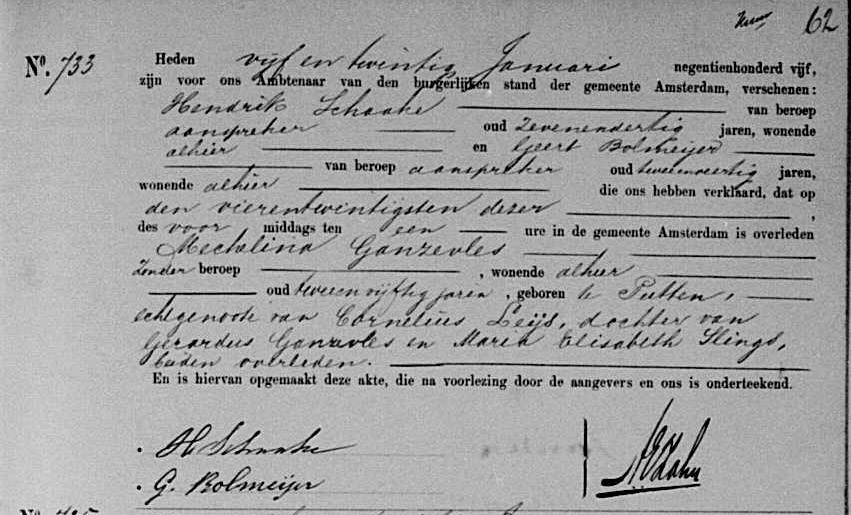 62
No. 733
Heden vijf en twintig Januari negentienhonderd vijf,
zijn voor ons Ambtenaar van den burgerlijken stand der gemeente Amsterdam, verschenen:
Hendrik Schaake van beroep
aanspreker oud Zevenendertig jaren, wonende
alhier en Geert Bolmeijer
van beroep aanspreker oud tweeenveertig jaren,
wonende alhier die ons hebben verklaard, dat op
den vierentwintigsten dezer,
des voor middags ten een ure in de gemeente Amsterdam is overleden
Mechelina Ganzevles
Zonder beroep, wonende alhier
oud tweeenvijftig jaren, geboren te Putten,
echtgenoote van Cornelius Leijs, dochter van
Gerardus Ganzevles en Maria Elisabeth Slings,
beiden overleden.
En is hiervan opgemaakt deze akte, die na voorlezing door de aangevers en ons is onderteekend.
H Schaake
G. Bolmeijer